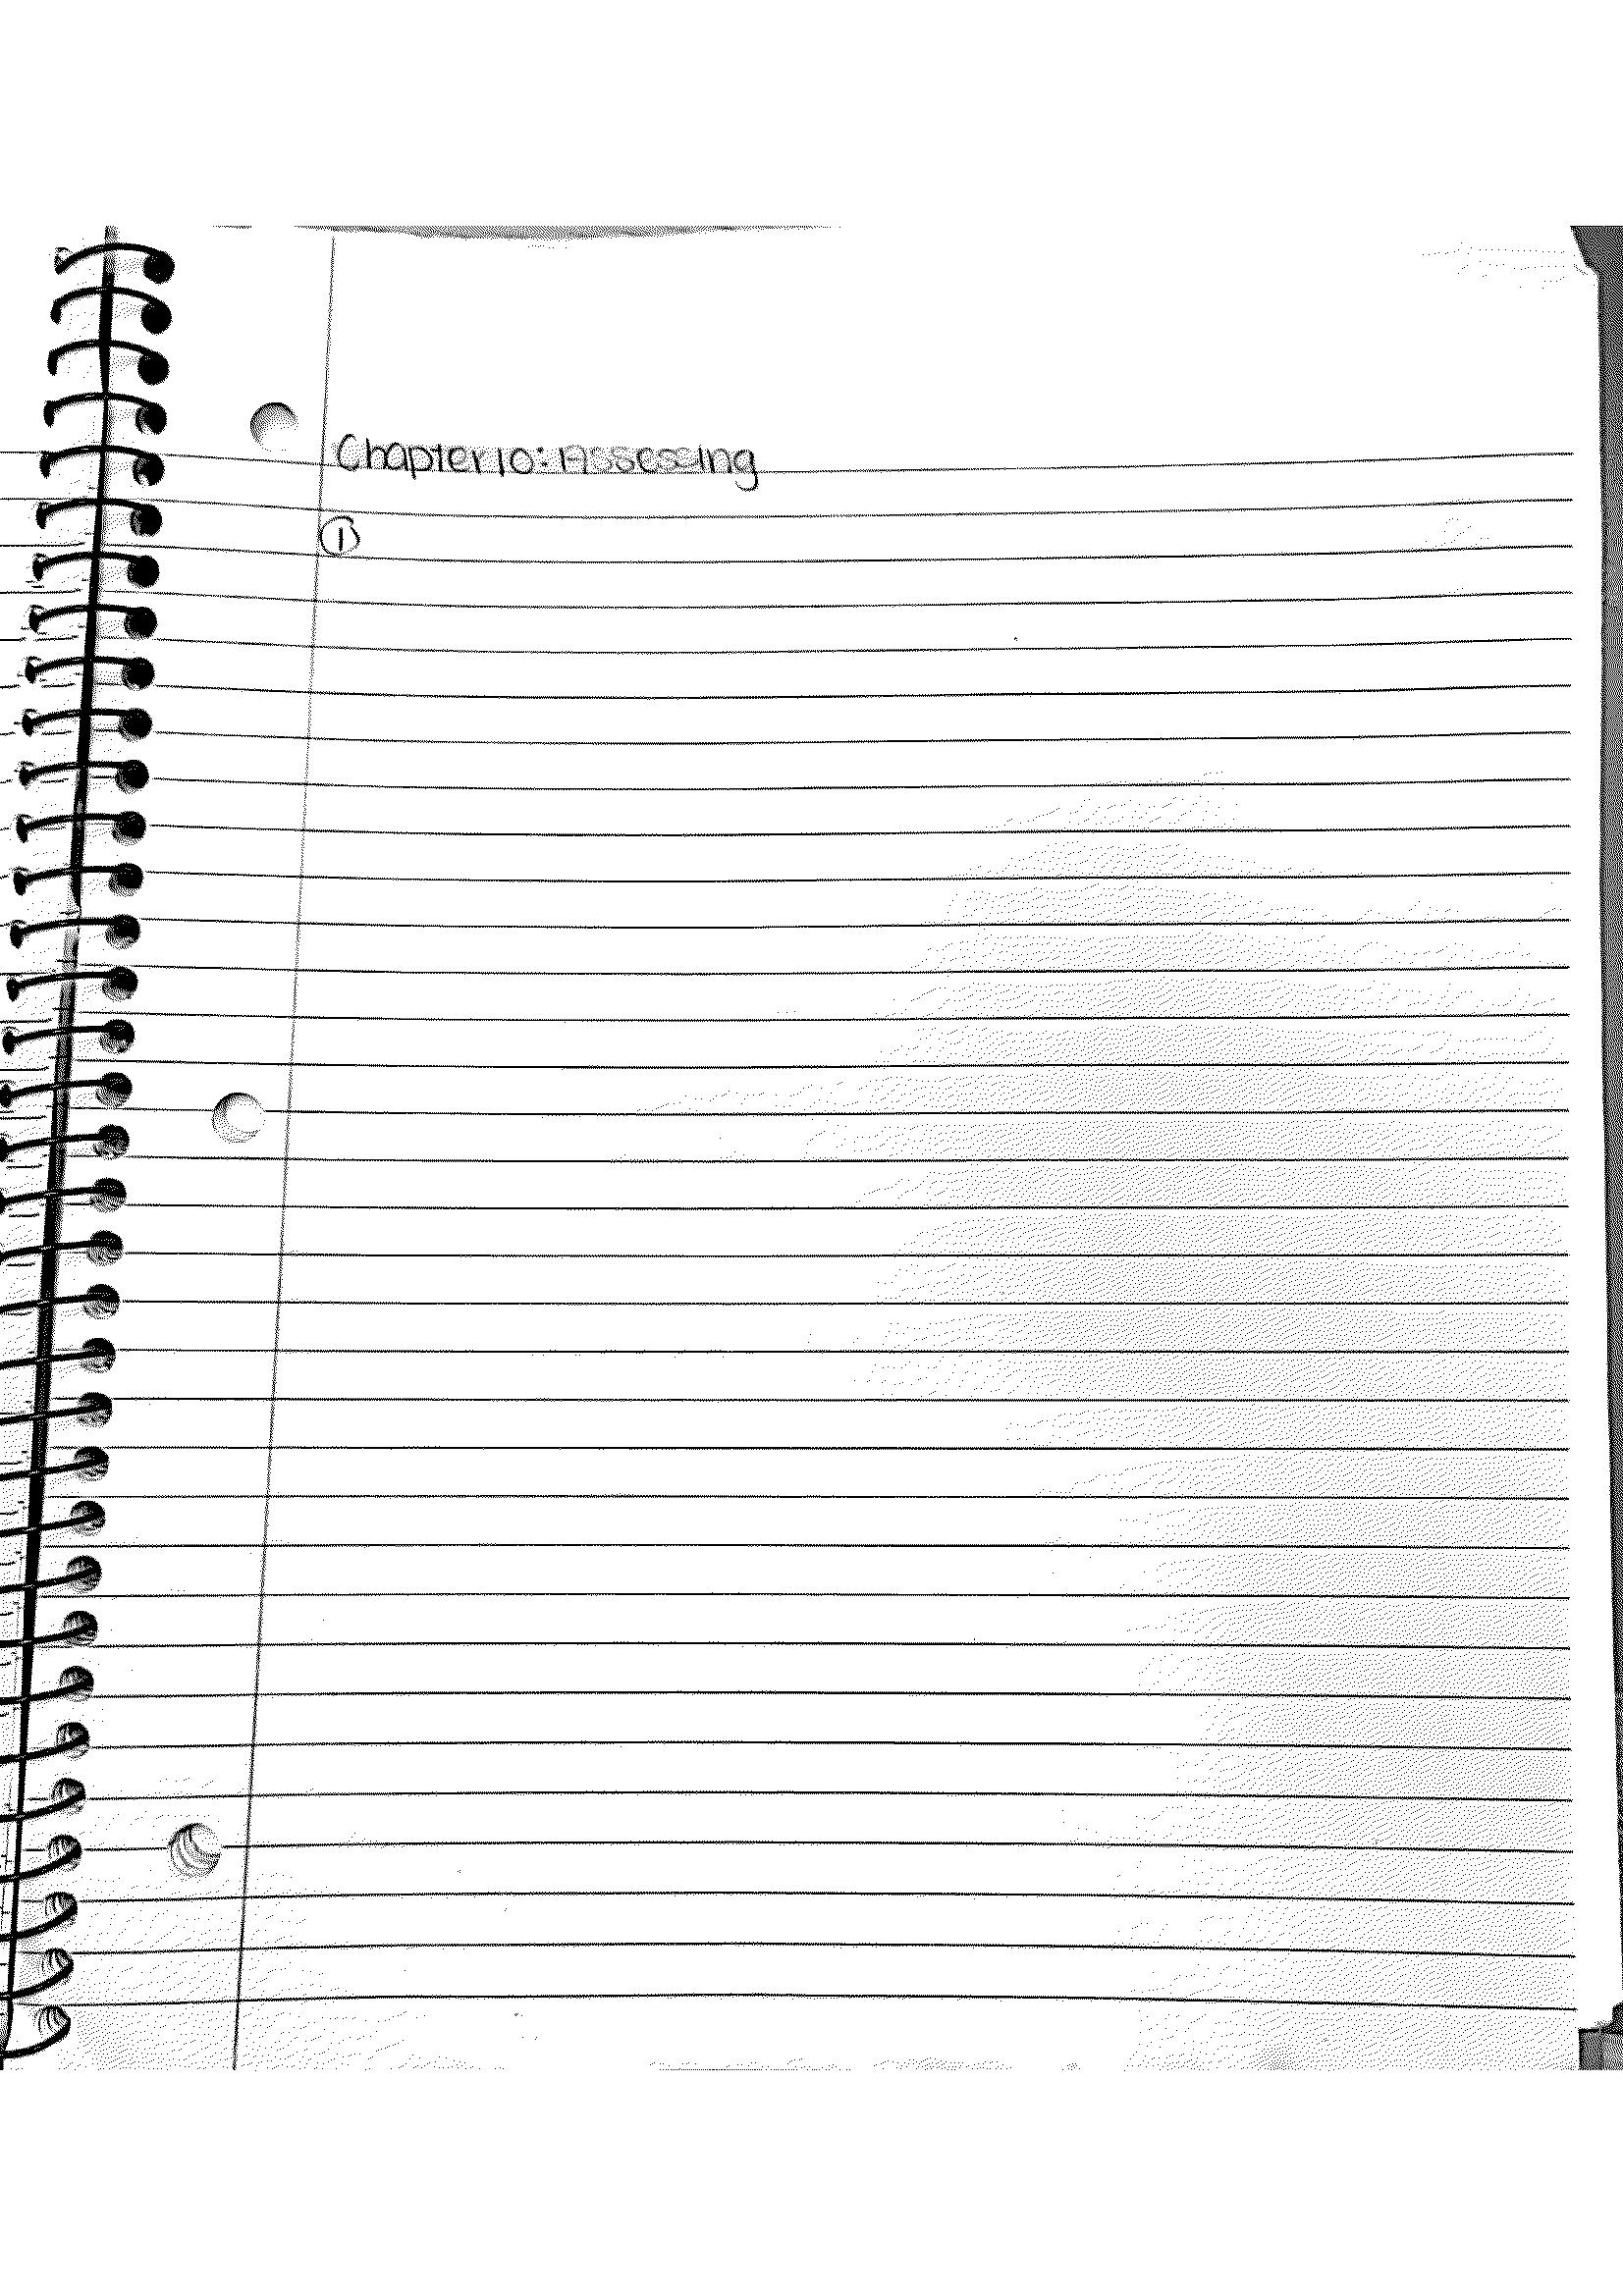 Chapter 10: Assessing
①